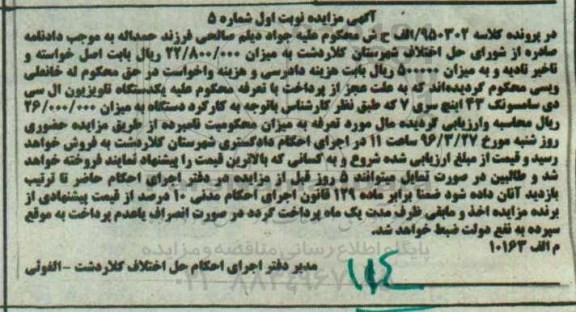 آگهی مزایده نوبت اول شماره ۵
در پرونده کلاسه ۹۵۰۳۰۲/الف ح ش محکوم علیه جواد دیلم صالحی فرزند حمداله به موجب دادنامه
صادره از شورای حل اختلاف شهرستان کلاردشت به میزان ۲۲/۸۰۰/۰۰۰ ریال بابت اصل خواسته و
تاخیر تادیه و به میزان ۵۰۰۰۰۰ ریال بابت هزینه دادرسی و هزینه واخواست در حق محکوم له خانعلی
ویسی محکوم گردیده‌اند که به علت عجز از پرداخت با تعرفه محکوم علیه یکدستگاه تلویزیون ال سی
دی سامسونگ ۴۳ اینچ سری ۷ که طبق نظر کارشناس باتوجه به کارکرد دستگاه به میزان ۲۶/۰۰۰/۰۰۰
ریال محاسبه وارزیابی گردیده حال مورد تعرفه به میزان محکومیت نامبرده از طریق مزایده حضوری
روز شنبه مورخ ۹۶/۳/۲۷ ساعت ۱۱ در اجرای احکام دادگستری شهرستان کلاردشت به فروش خواهد
رسید و قیمت از مبلغ ارزیابی شده شروع و به کسانی که بالاترین قیمت را پیشنهاد نمایند فروخته خواهد
شد و طالبین در صورت تمایل میتوانند ۵ روز قبل از مزایده در دفتر اجرای احکام حاضر تا ترتیب
بازدید آنان داده شود ضمنا برابر ماده ۱۲۹ قانون اجرای احکام مدنی ۱۰ درصد از قیمت پیشنهادی از
برنده مزایده اخذ و مابقی ظرف مدت یک ماه پرداخت گردد در صورت انصراف یاعدم پرداخت به موقع
سپرده به نفع دولت ضبط خواهد شد.
م الف ۱۰۱۶۳
پایگاه اطلاع رسانی مناقصه و مزایده
مدیر دفتر اجرای احکام حل اختلاف کلاردشت -الفوتی